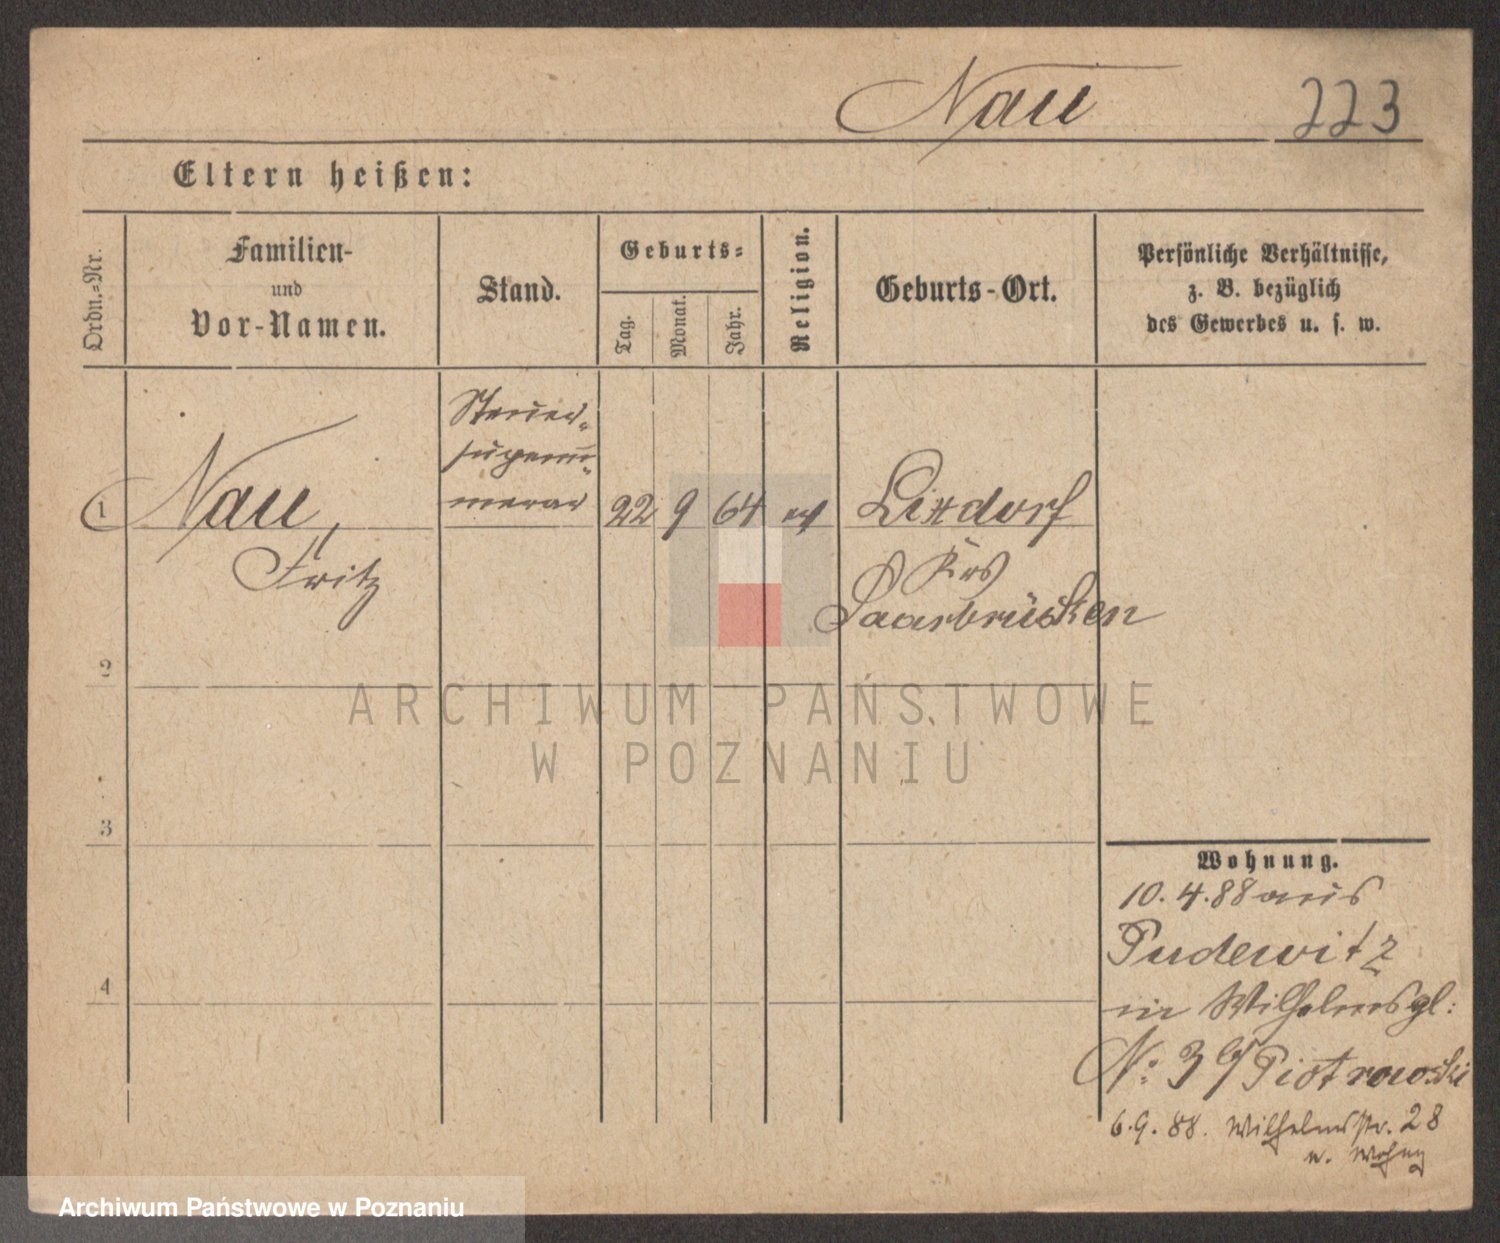 Nau 223
Eltern heißen:
Ordn.-Nr.
Familien-
und
Vor-Namen.
Stand.
Geburts-
Tag.
Monat.
Jahr.
Religion.
Geburts-Ort.
Persönliche Verhältnisse,
z. B. bezüglich
des Gewerbes u. s. w.
Steuer-
supernu-
merar
1 Nau, 22 9 64 ev Lixdorf
Fritz Krs
Saarbrücken
2
3
4
Wohnung.
10. 4. 88 aus
Pudewitz
in Wilhelmspl:
No: 3 b/ Piotrowski
6. 9. 88. Wilhelmstr. 28
n. Wohng
ARCHIWUM PAŃSTWOWE
W POZNANIU
Archiwum Państwowe w Poznaniu